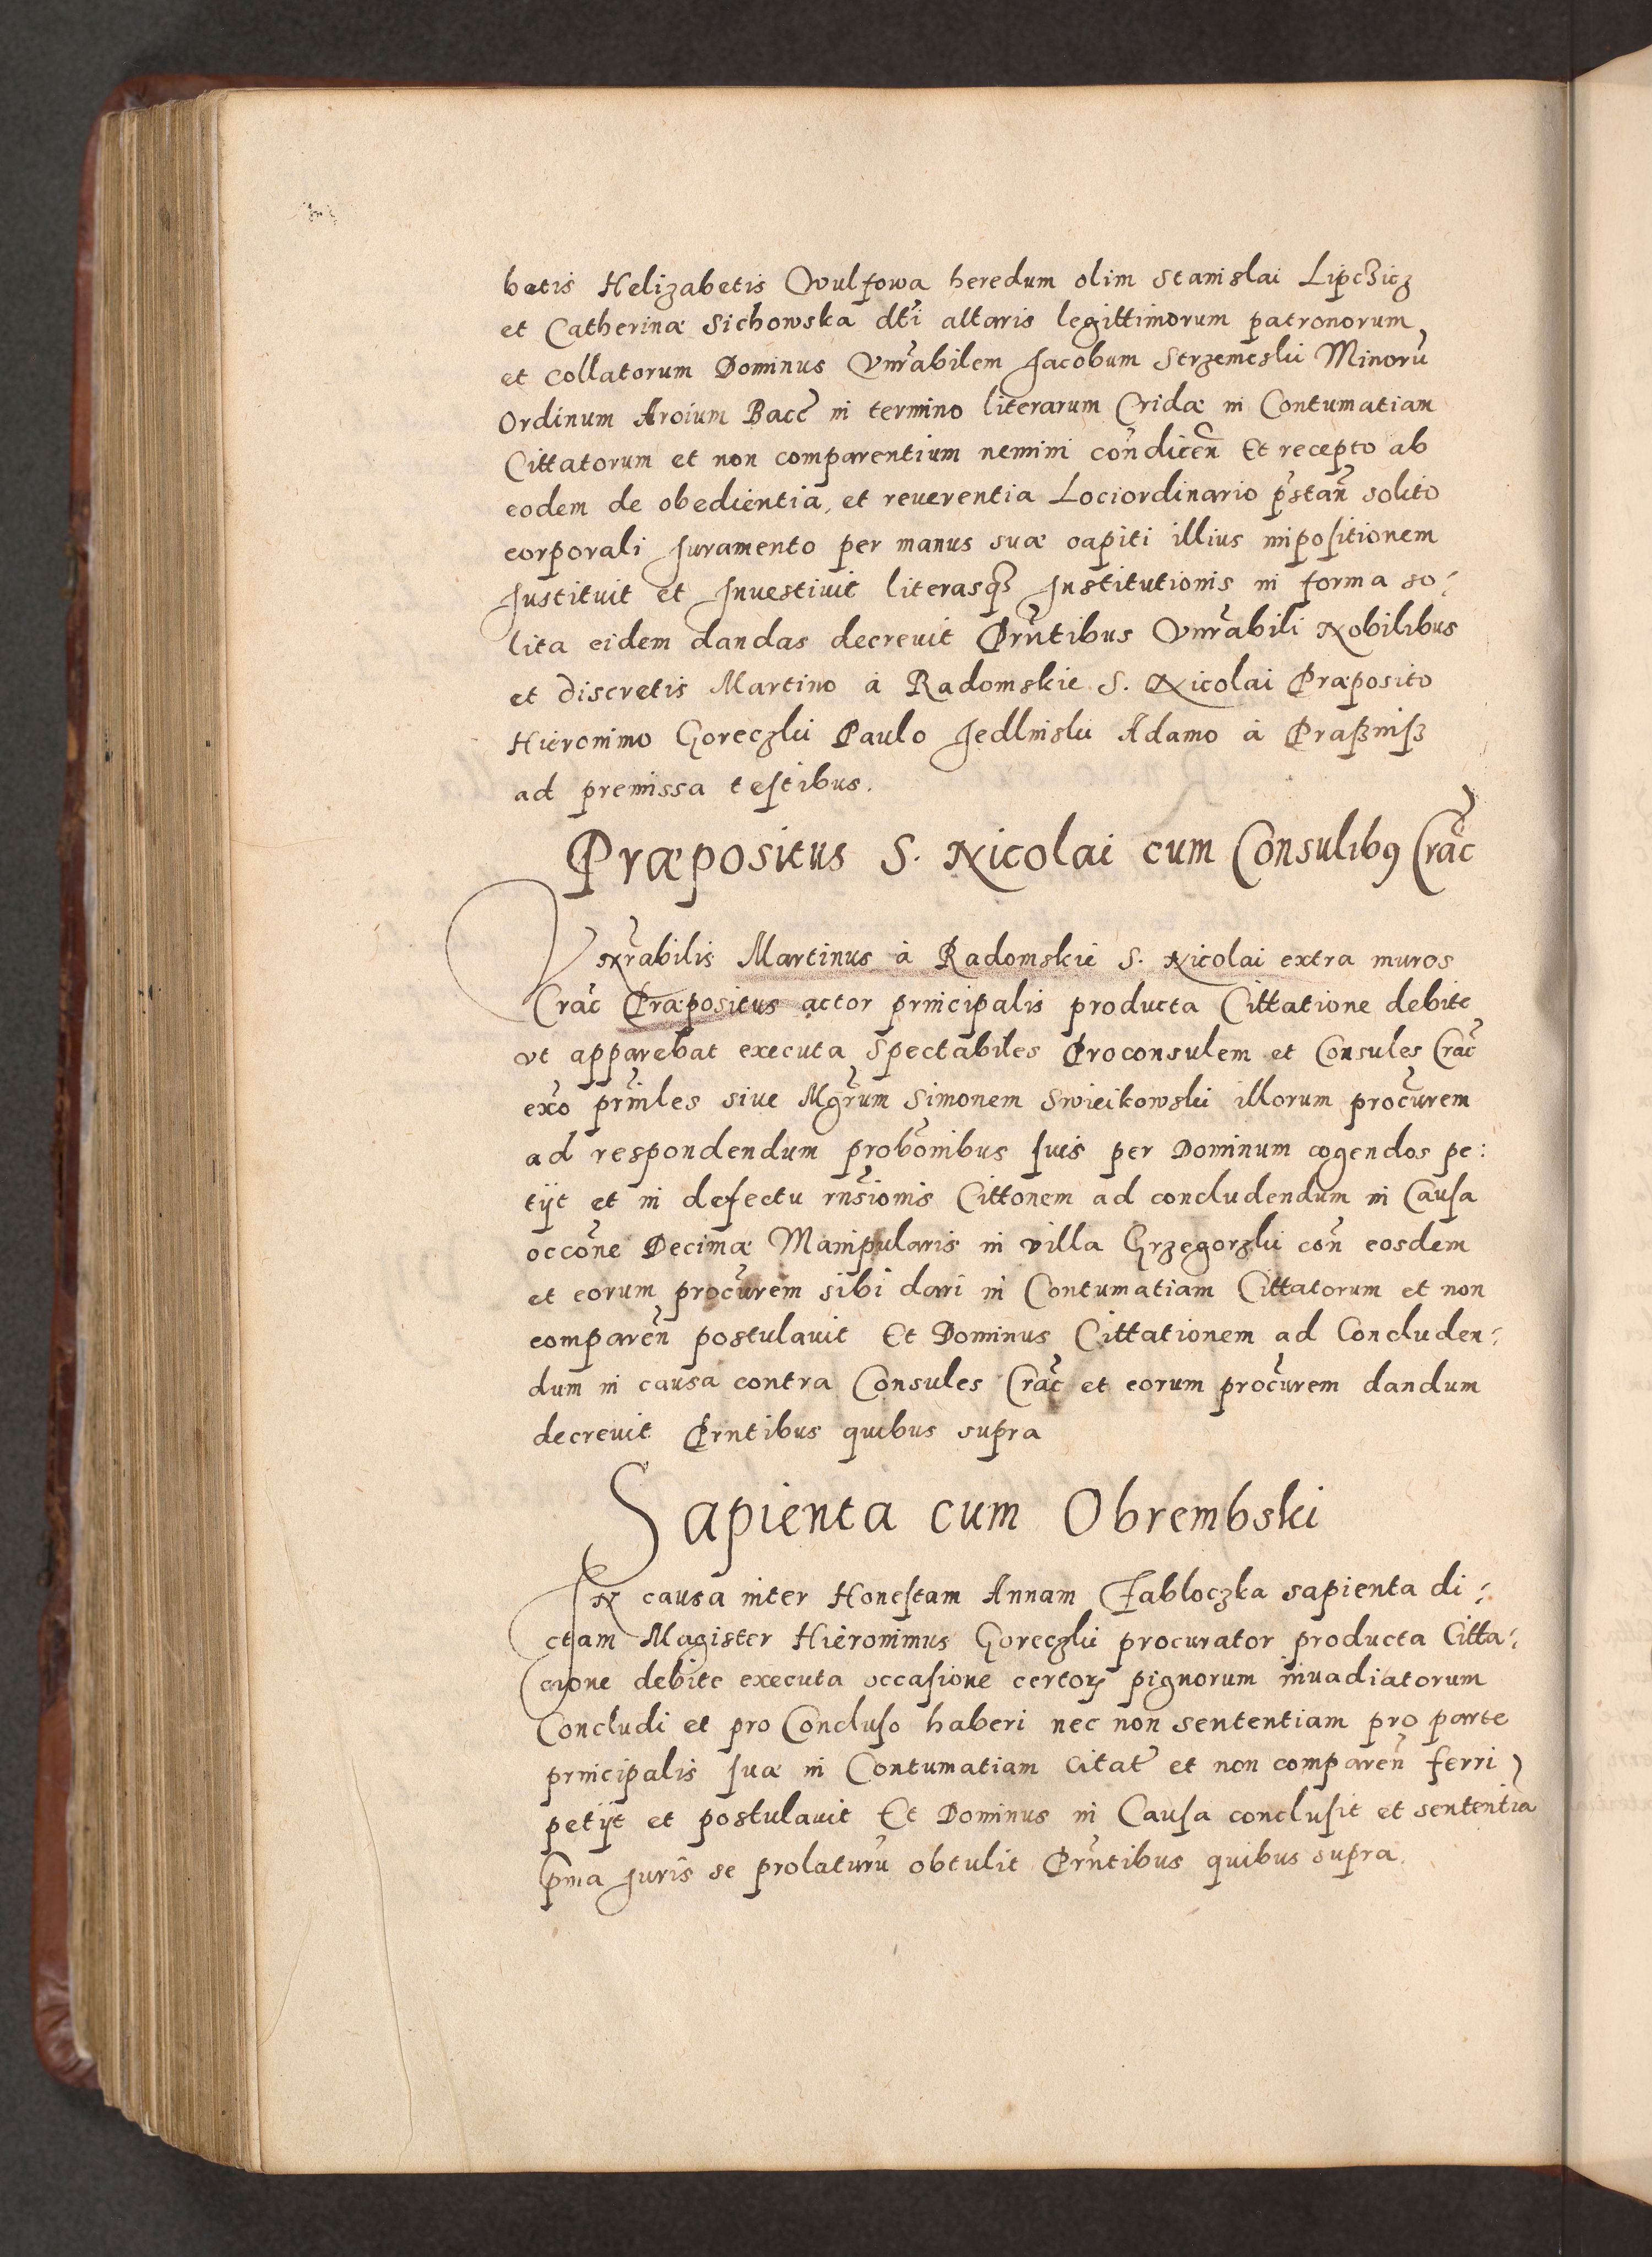 betis Helizabetis Wulfowa heredum olim Stanislai Lipchicz
et Catherinæ Sichowska dti altaris legittimorum patronorum
et collatorum Dominus Vnrabilem Jacobum Strzemeski Minorũ
Ordinum Aroium Bacc in termino literarum Cridæ in Contumatiam
Cittatorum et non comparentium nemini condiceñ Et recepto ab
eodem de obedientia, et reuerentia Lociordinario pstañ solito
corporali Juramento per manus suæ capiti illius impositionem
Jnstituit et Jnuestiuit literasq3 Jnstitutionis in forma so-
lita eidem dandas decreuit Prñtibus Vnrabili Nobilibus
et discretis Martino à Radomskie S. Nicolai Præposito
Hieronimo Goreczki Paulo Jedlinski Adamo à Praßniß
ad premissa testibus.
Præpositus S. Nicolai cum Consulib9 Crac
Vnrabilis Martinus à Radomskie S. Nicolai extra muros
Crac Præpositus actor principalis producta Cittatione debite
vt apparebat executa Spectabiles Proconsulem et Consules Crac
exo prinles siue Mgrum Simonem Swieikowski illorum procurem
ad respondendum probonibus suis per Dominum cogendos pe:
tijt et in defectu rnsionis Cittonem ad concludendum in Causa
occone Decimæ Manipularis in villa Grzegorzki coñ eosdem
et eorum procurem sibi dari in Contumatiam Cittatorum et non
compareñ postulauit Et Dominus Cittationem ad Concluden-
dum in causa contra Consules Crac et eorum procurem dandum
decreuit Prntibus quibus supra
Sapienta cum Obrembski
Jn causa inter Honestam Annam Jabloczka sapienta di-
ctam Magister Hieronimus Goreczki procurator producta Citta-
cione debite executa occasione certorꝝ pignorum inuadiatorum
Concludi et pro Concluso haberi nec non sententiam pro parte
principalis suæ in Contumatiam Citat et non compareñ ferri
petijt et postulauit Et Dominus in Causa conclusit et sententia
pma Juris se prolaturũ obtulit Prñtibus quibus supra.